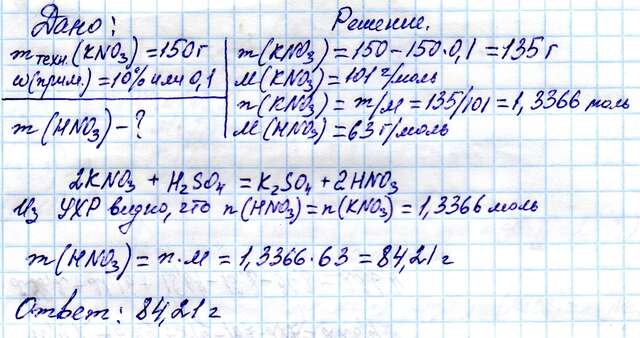 Дано:
m техн.(KNO₃) = 150 г
ω(прим.) = 10% или 0,1
m (HNO₃) - ?
Решение.
m(KNO₃) = 150 - 150·0,1 = 135 г
M(KNO₃) = 101 г/моль
n(KNO₃) = m/M = 135/101 = 1,3366 моль
M(HNO₃) = 63 г/моль
2KNO₃ + H₂SO₄ = K₂SO₄ + 2HNO₃
Из УХР видно, что n(HNO₃) = n(KNO₃) = 1,3366 моль
m(HNO₃) = n·M = 1,3366·63 = 84,21 г
Ответ: 84,21 г